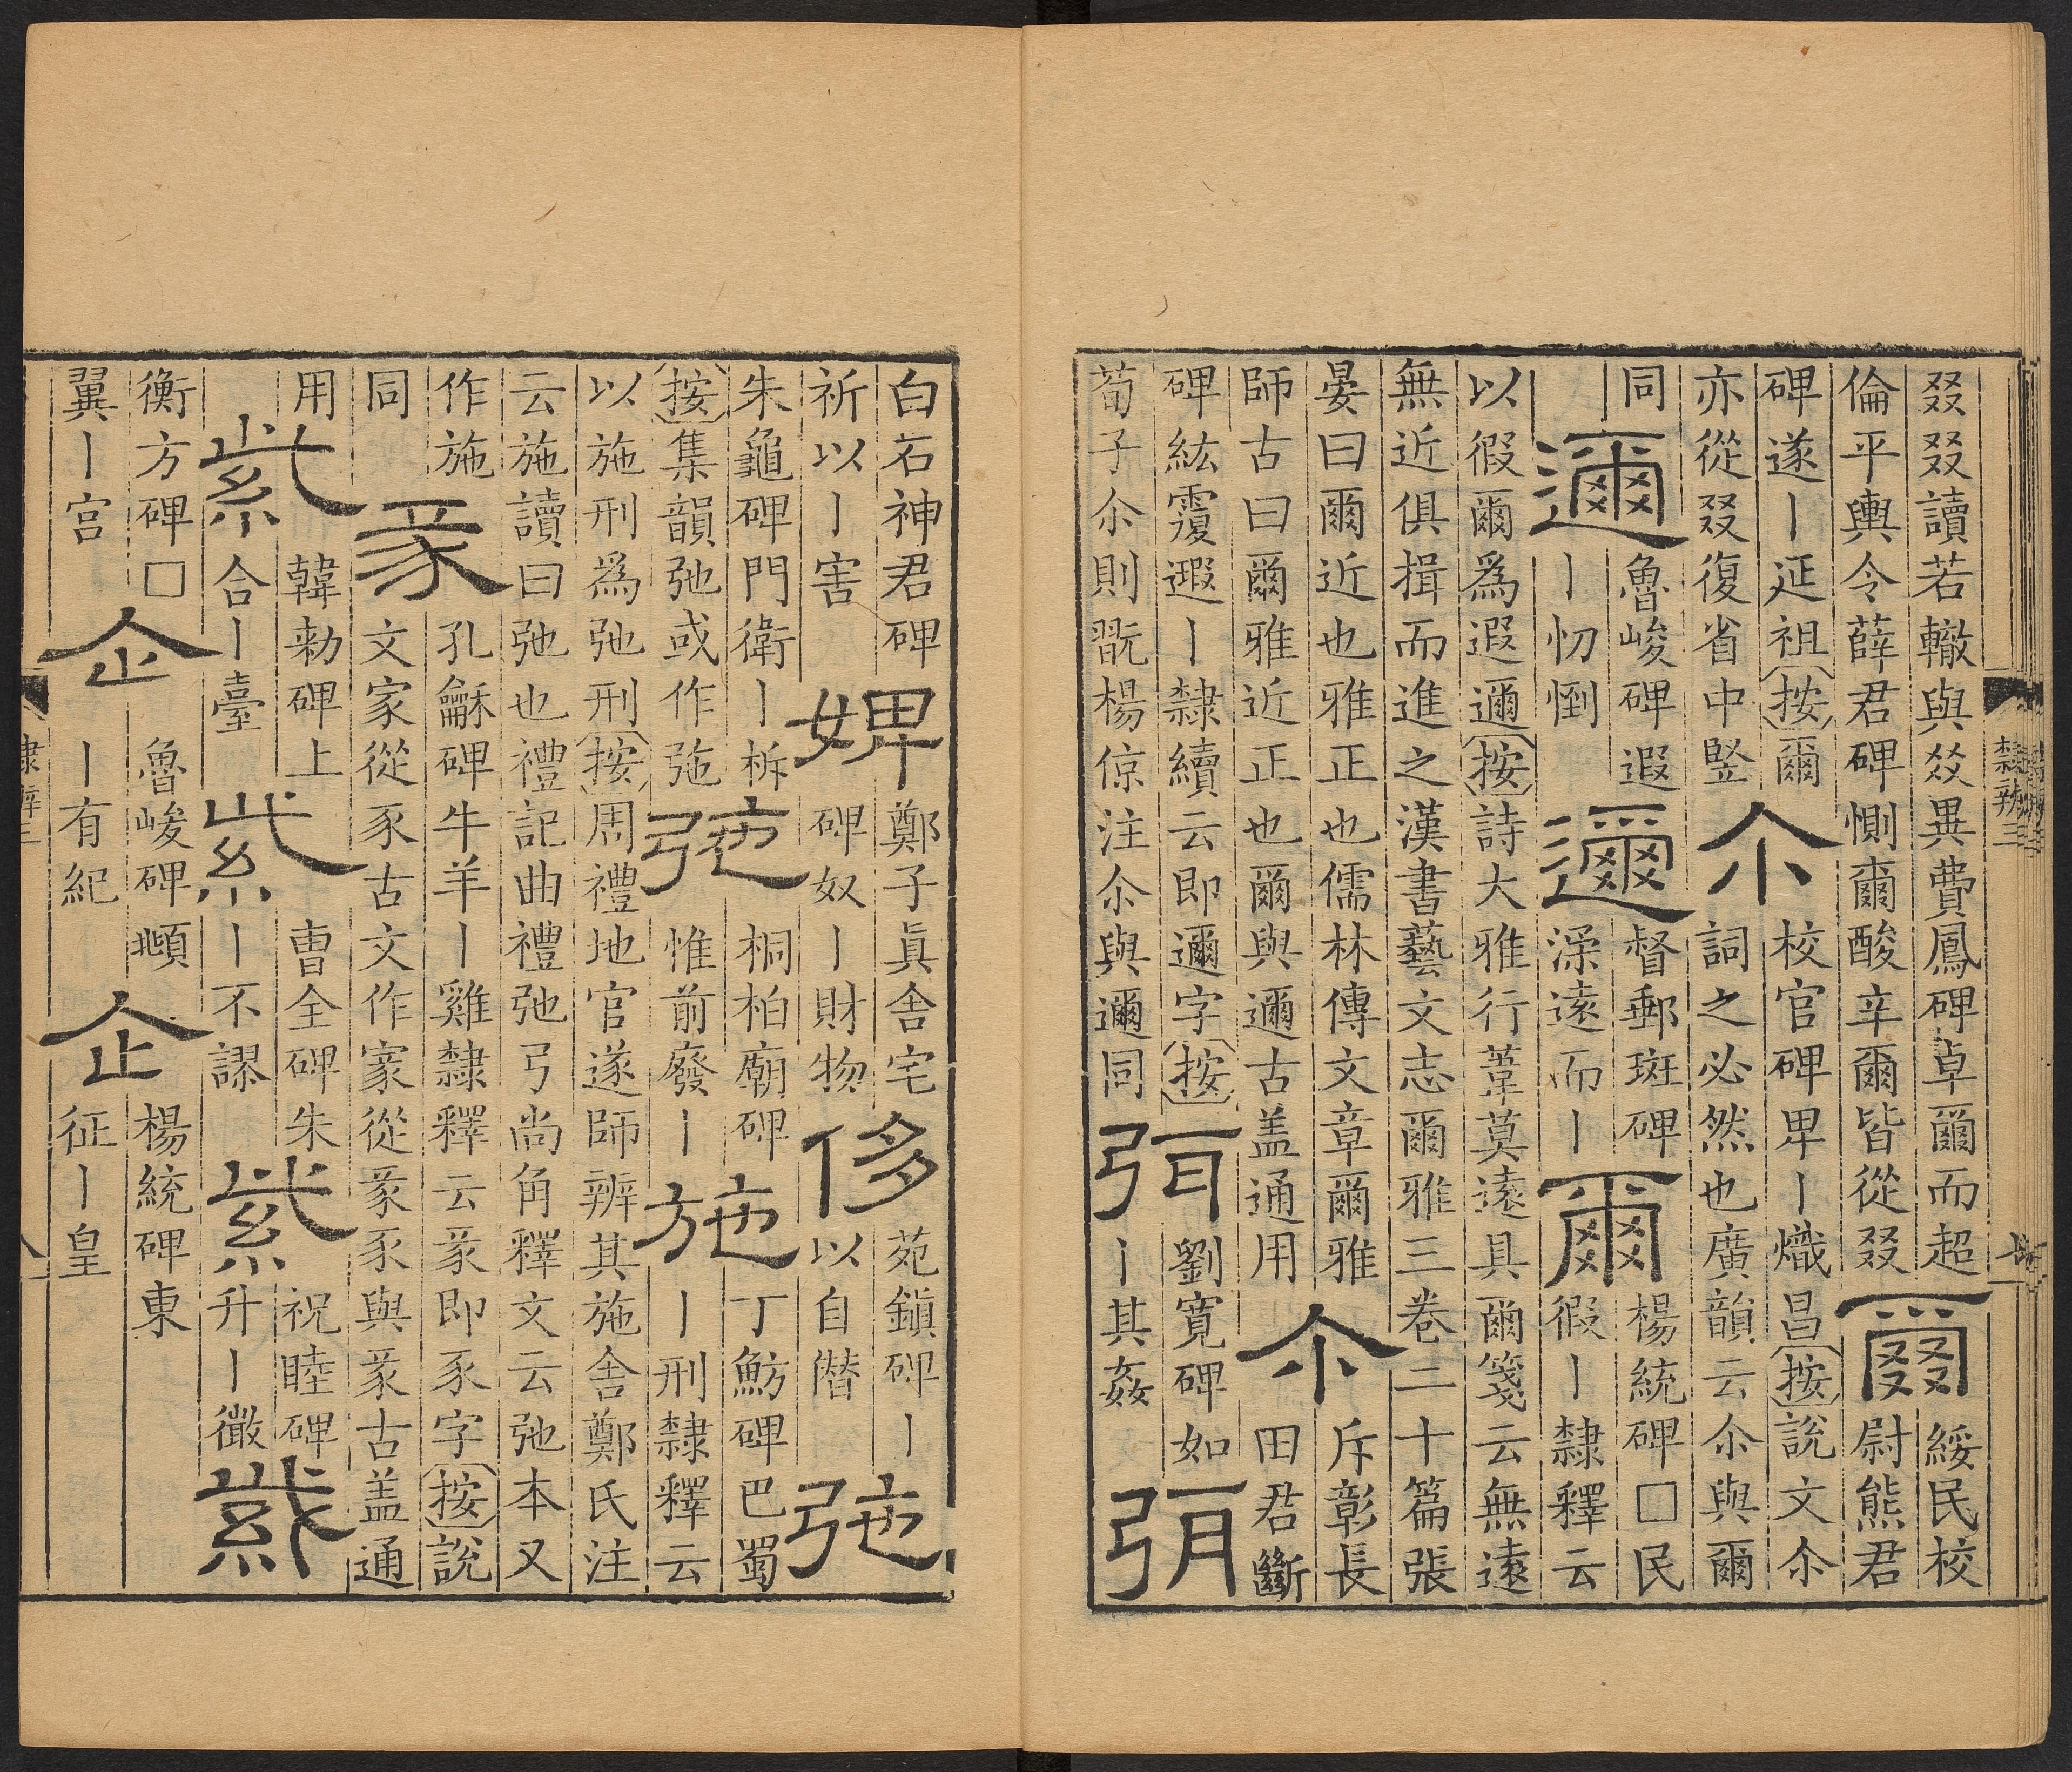 叕叕讀若轍與㸚異費鳳碑卓爾而超
倫平輿令薛君碑惻爾酸辛爾皆從叕
爾
綏民校
尉熊君
碑遂丨延祖按爾
亦從叕復省中竪
尒
校官碑卑丨熾昌按說文尒
詞之必然也廣韻云尒與爾
同
邇
魯峻碑遐
丨忉𢛴
邇
督郵斑碑
深遠而丨
爾
楊統碑□民
徦丨隸釋云
以徦爾爲遐邇按詩大雅行葦莫遠具爾箋云無遠
無近俱揖而進之漢書藝文志爾雅三卷二十篇張
晏曰爾近也雅正也儒林傳文章爾雅
師古曰爾雅近正也爾與邇古盖通用
尒
斥彰長
田君斷
碑紘覆遐丨隸續云即邇字按
荀子尒則翫楊倞注尒與邇同
弭
劉寬碑如
丨其姦
弭
白石神君碑
祈以丨害
婢
鄭子真舍宅
碑奴丨財物
侈
苑鎮碑丨
以自僭
弛
朱龜碑門衛丨柝
按集韻弛或作㢮
㢮
桐柏廟碑
惟前廢丨
施
丁魴碑巴蜀
丨刑隸釋云
以施刑爲弛刑按周禮地官遂師辨其施舍鄭氏注
云施讀曰弛也禮記曲禮弛弓尚角釋文云弛本又
作施
同
豕
孔龢碑牛羊丨雞隸釋云豙即豕字按說
文家從豕古文作𡩀從豙豕與豙古盖通
用
紫
韓勑碑上
合丨臺
紫
曹全碑朱
丨不謬
紫
祝睦碑
升丨徵
紫
衡方碑□
翼丨宫
企
魯峻碑顤
丨有紀
企
楊統碑東
征丨皇
隸辨三